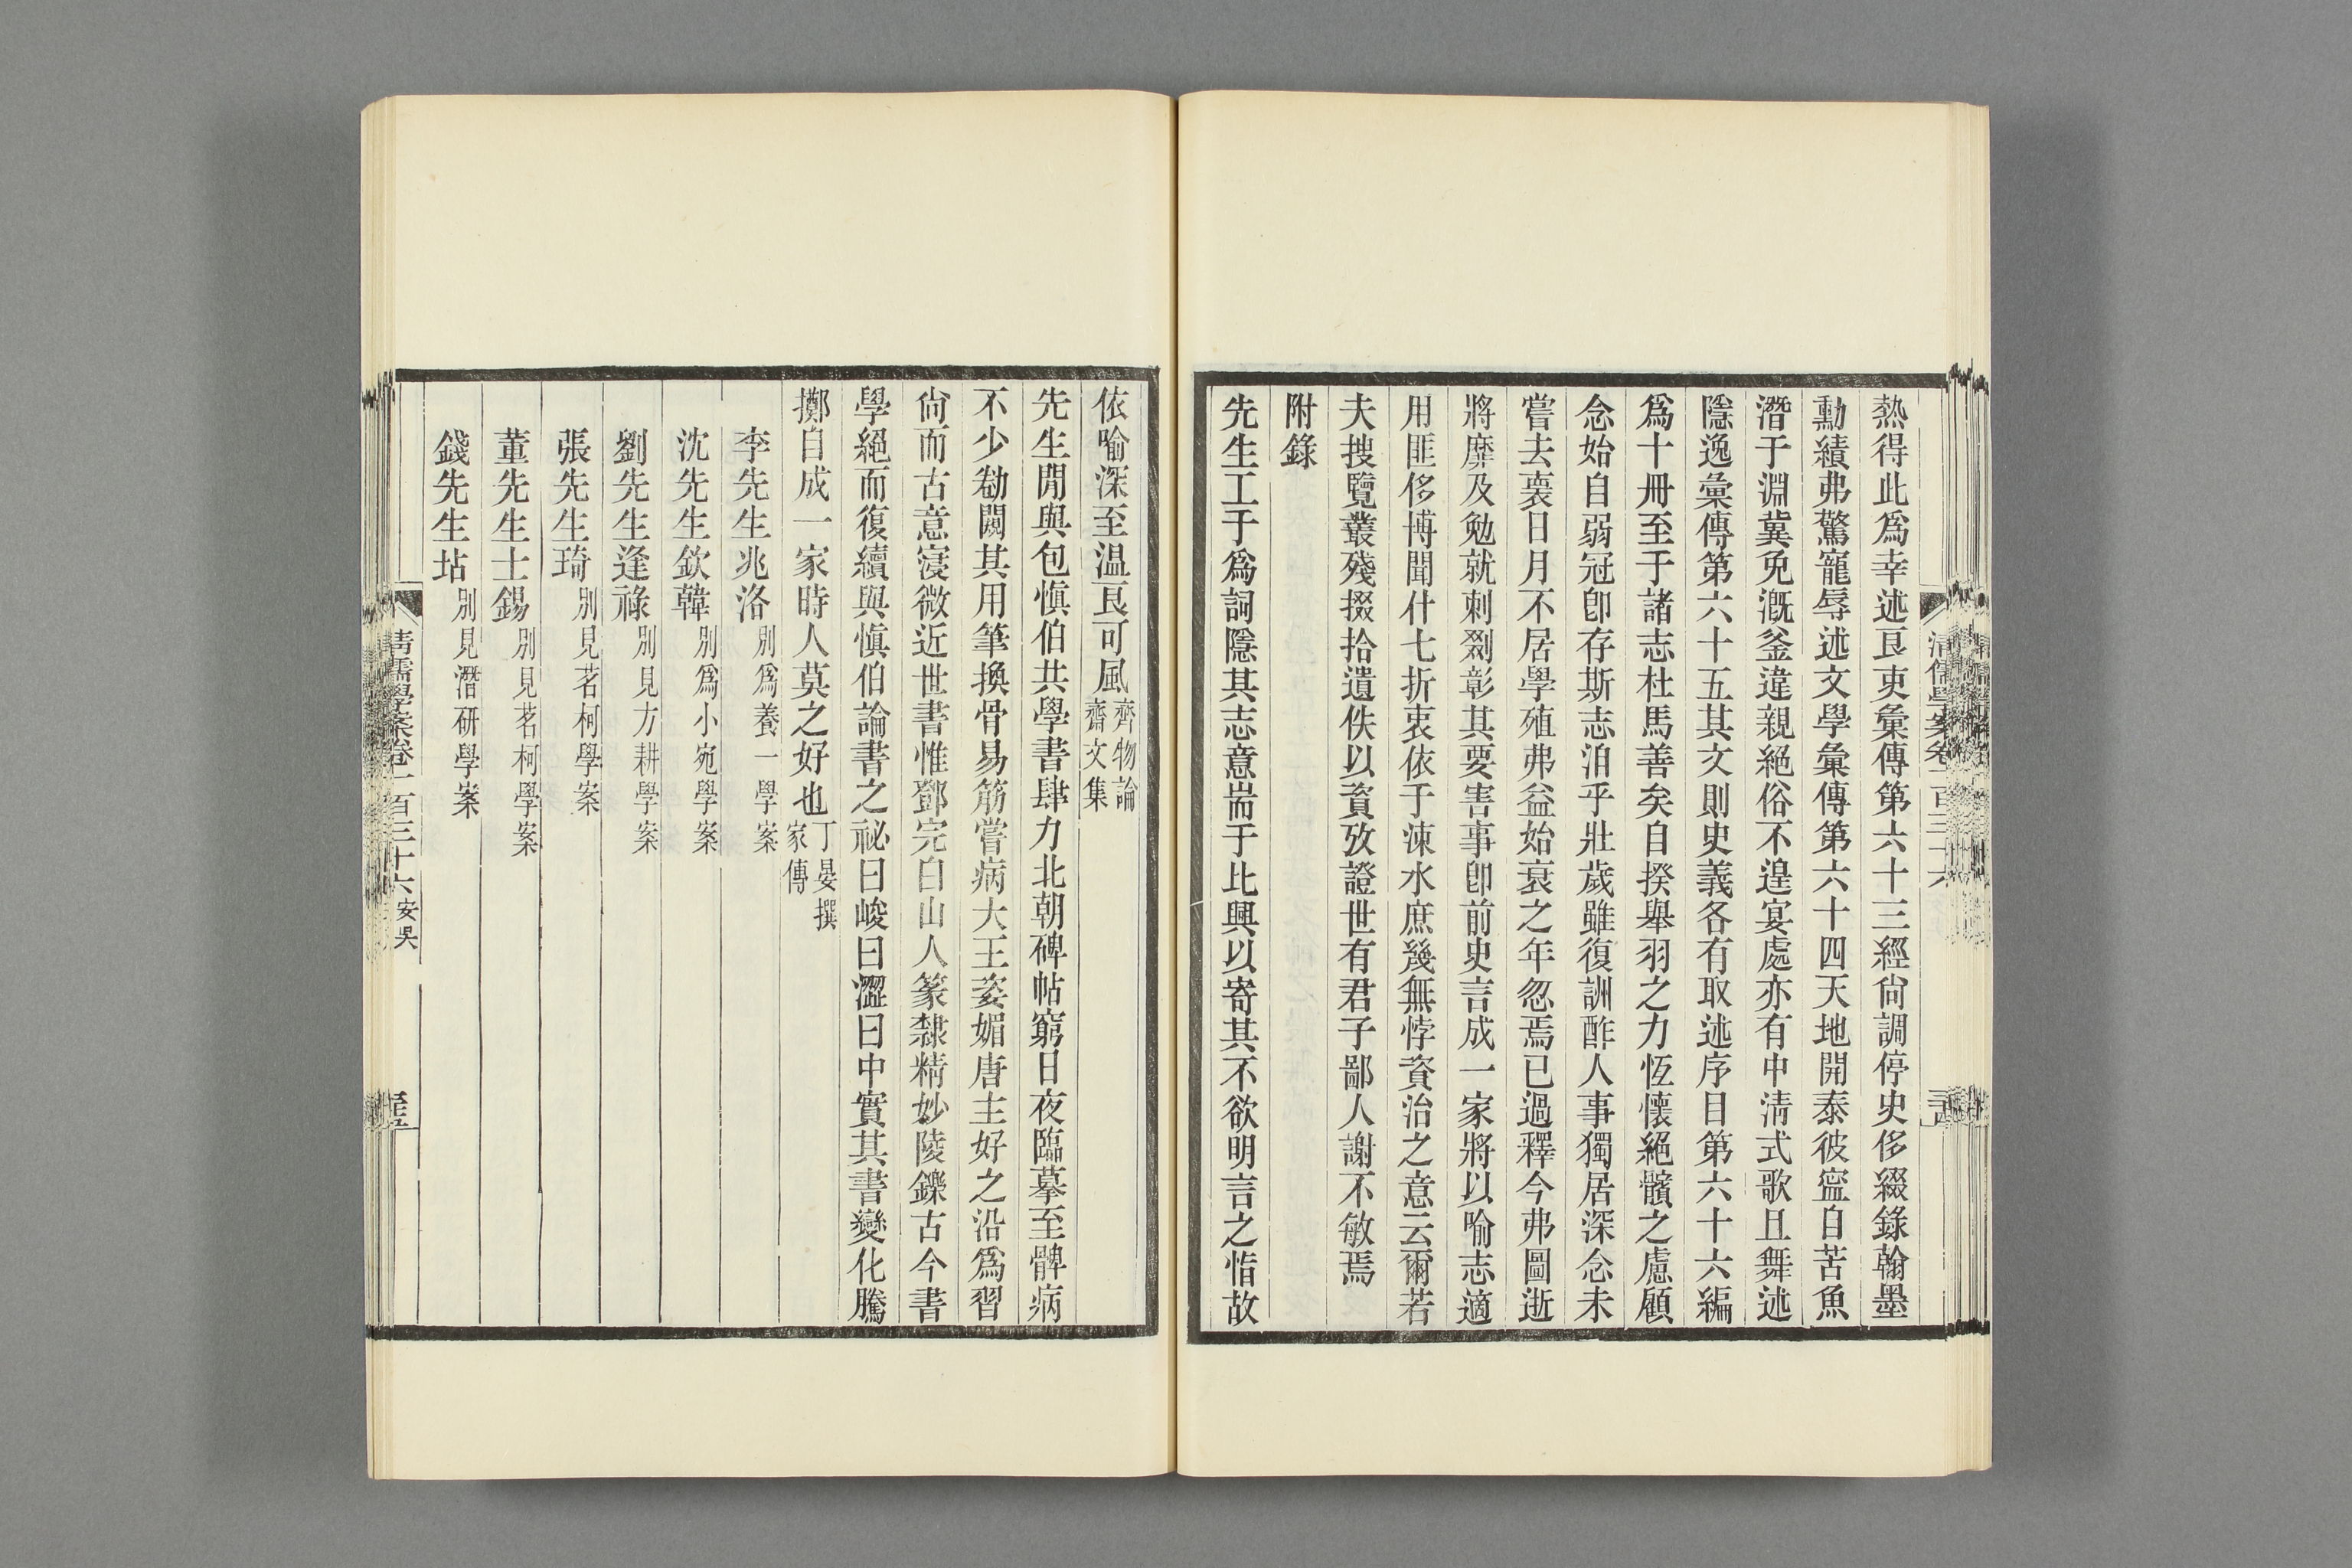 熱得此爲幸述良吏彙傳第六十三經尙調停史侈綴錄翰墨
勳績弗驚寵辱述文學彙傳第六十四天地開泰彼寍自苦魚
潛于淵冀免漑釜違親絕俗不遑宴處亦有中淸式歌且舞述
隱逸彙傳第六十五其文則史義各有取述序目第六十六編
爲十冊至于諸志杜馬善矣自揆舉羽之力恆懷絕髕之慮顧
念始自弱冠卽存斯志洎乎壯歲雖復詶酢人事獨居深念未
嘗去褱日月不居學殖弗益始衰之年忽焉已過釋今弗圖逝
將靡及勉就刺剟彰其要害事卽前史言成一家將以喻志適
用匪侈博聞什七折衷依于涑水庶幾無悖資治之意云爾若
夫搜覽叢殘掇拾遺佚以資攷證世有君子鄙人謝不敏焉
附錄
先生工于爲詞隱其志意耑于比興以寄其不欲明言之恉故
依喻深至温良可風齊物論
齋文集
先生閒與包愼伯共學書肆力北朝碑帖窮日夜臨摹至髀病
不少勌闋其用筆換骨易筋嘗病大王姿媚唐主好之沿爲習
尙而古意寖微近世書惟鄧完白山人篆隸精妙陵鑠古今書
學絕而復續與愼伯論書之祕曰峻曰澀曰中實其書變化騰
擲自成一家時人莫之好也丁晏撰
家傳
李先生兆洛別爲養一學案
沈先生欽韓別爲小宛學案
劉先生逢祿別見方耕學案
張先生琦別見茗柯學案
董先生士錫別見茗柯學案
錢先生坫別見潛研學案
清儒學案卷一百三十六安吳